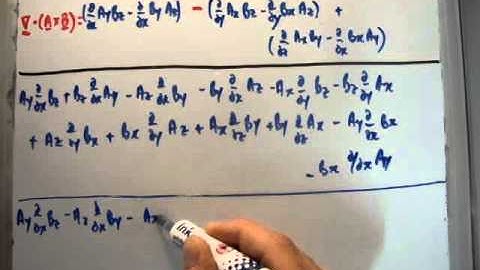 ∇·(A×B) = (∂/∂x AyBz - ∂/∂x ByAz) - (∂/∂y AxBz - ∂/∂y BxAz) +
(∂/∂z AxBy - ∂/∂z BxAy)
Ay ∂/∂x Bz + Bz ∂/∂x Ay - Az ∂/∂x By - By ∂/∂x Az - Ax ∂/∂y Bz - Bz ∂/∂y Ax
+ Az ∂/∂y Bx + Bx ∂/∂y Az + Ax ∂/∂z By + By ∂/∂z Ax - Ay ∂/∂z Bx
- Bx ∂/∂z Ay
Ay ∂/∂x Bz - Az ∂/∂x By - Ax
ink